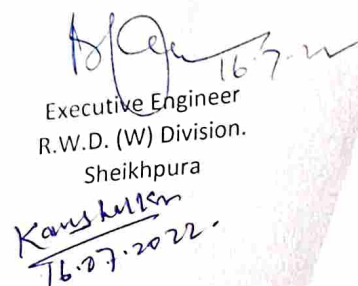 16.7.22
Executive Engineer
R.W.D. (W) Division.
Sheikhpura
16.07.2022.